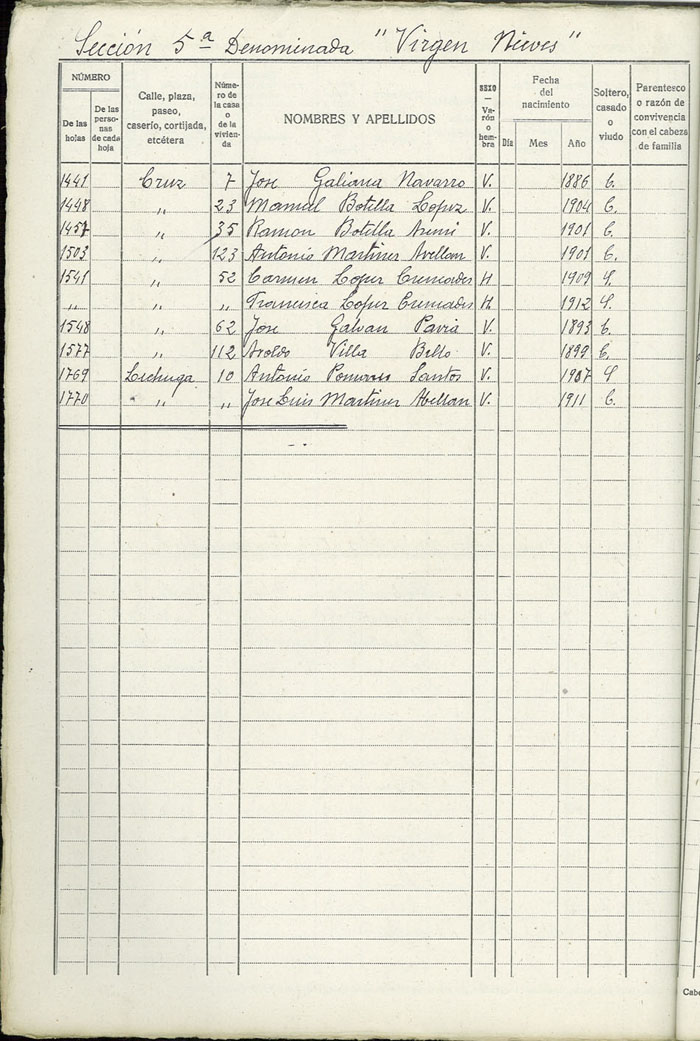 Sección 5ª Denominada "Virgen Nieves"
NÚMERO
De las hojas
De las personas de cada hoja
Calle, plaza, paseo, caserío, cortijada, etcétera
Número de la casa o de la vivienda
NOMBRES Y APELLIDOS
SEXO — Varón o hembra
Fecha del nacimiento
Día Mes Año
Soltero, casado o viudo
Parentesco o razón de convivencia con el cabeza de familia
1441 Cruz 7 Jose Galiana Navarro V. 1886 C.
1448 " 23 Manuel Botella Lopez V. 1904 C.
1457 " 35 Ramon Botella V. 1901 C.
1503 " 123 Antonio Martinez Avellan V. 1901 C.
1541 " 52 Carmen Lopez Cremades H 1909 S.
" " " Francisca Lopez Cremades H. 1912 S.
1548 " 62 Jose Galvan Pavia V. 1893 C.
1577 " 112 Villa Bello V. 1899 C.
1769 Lechuga 10 Antonio Pomares Santos V. 1907 S
1770 " " Jose Luis Martinez Abellan V. 1911 C.